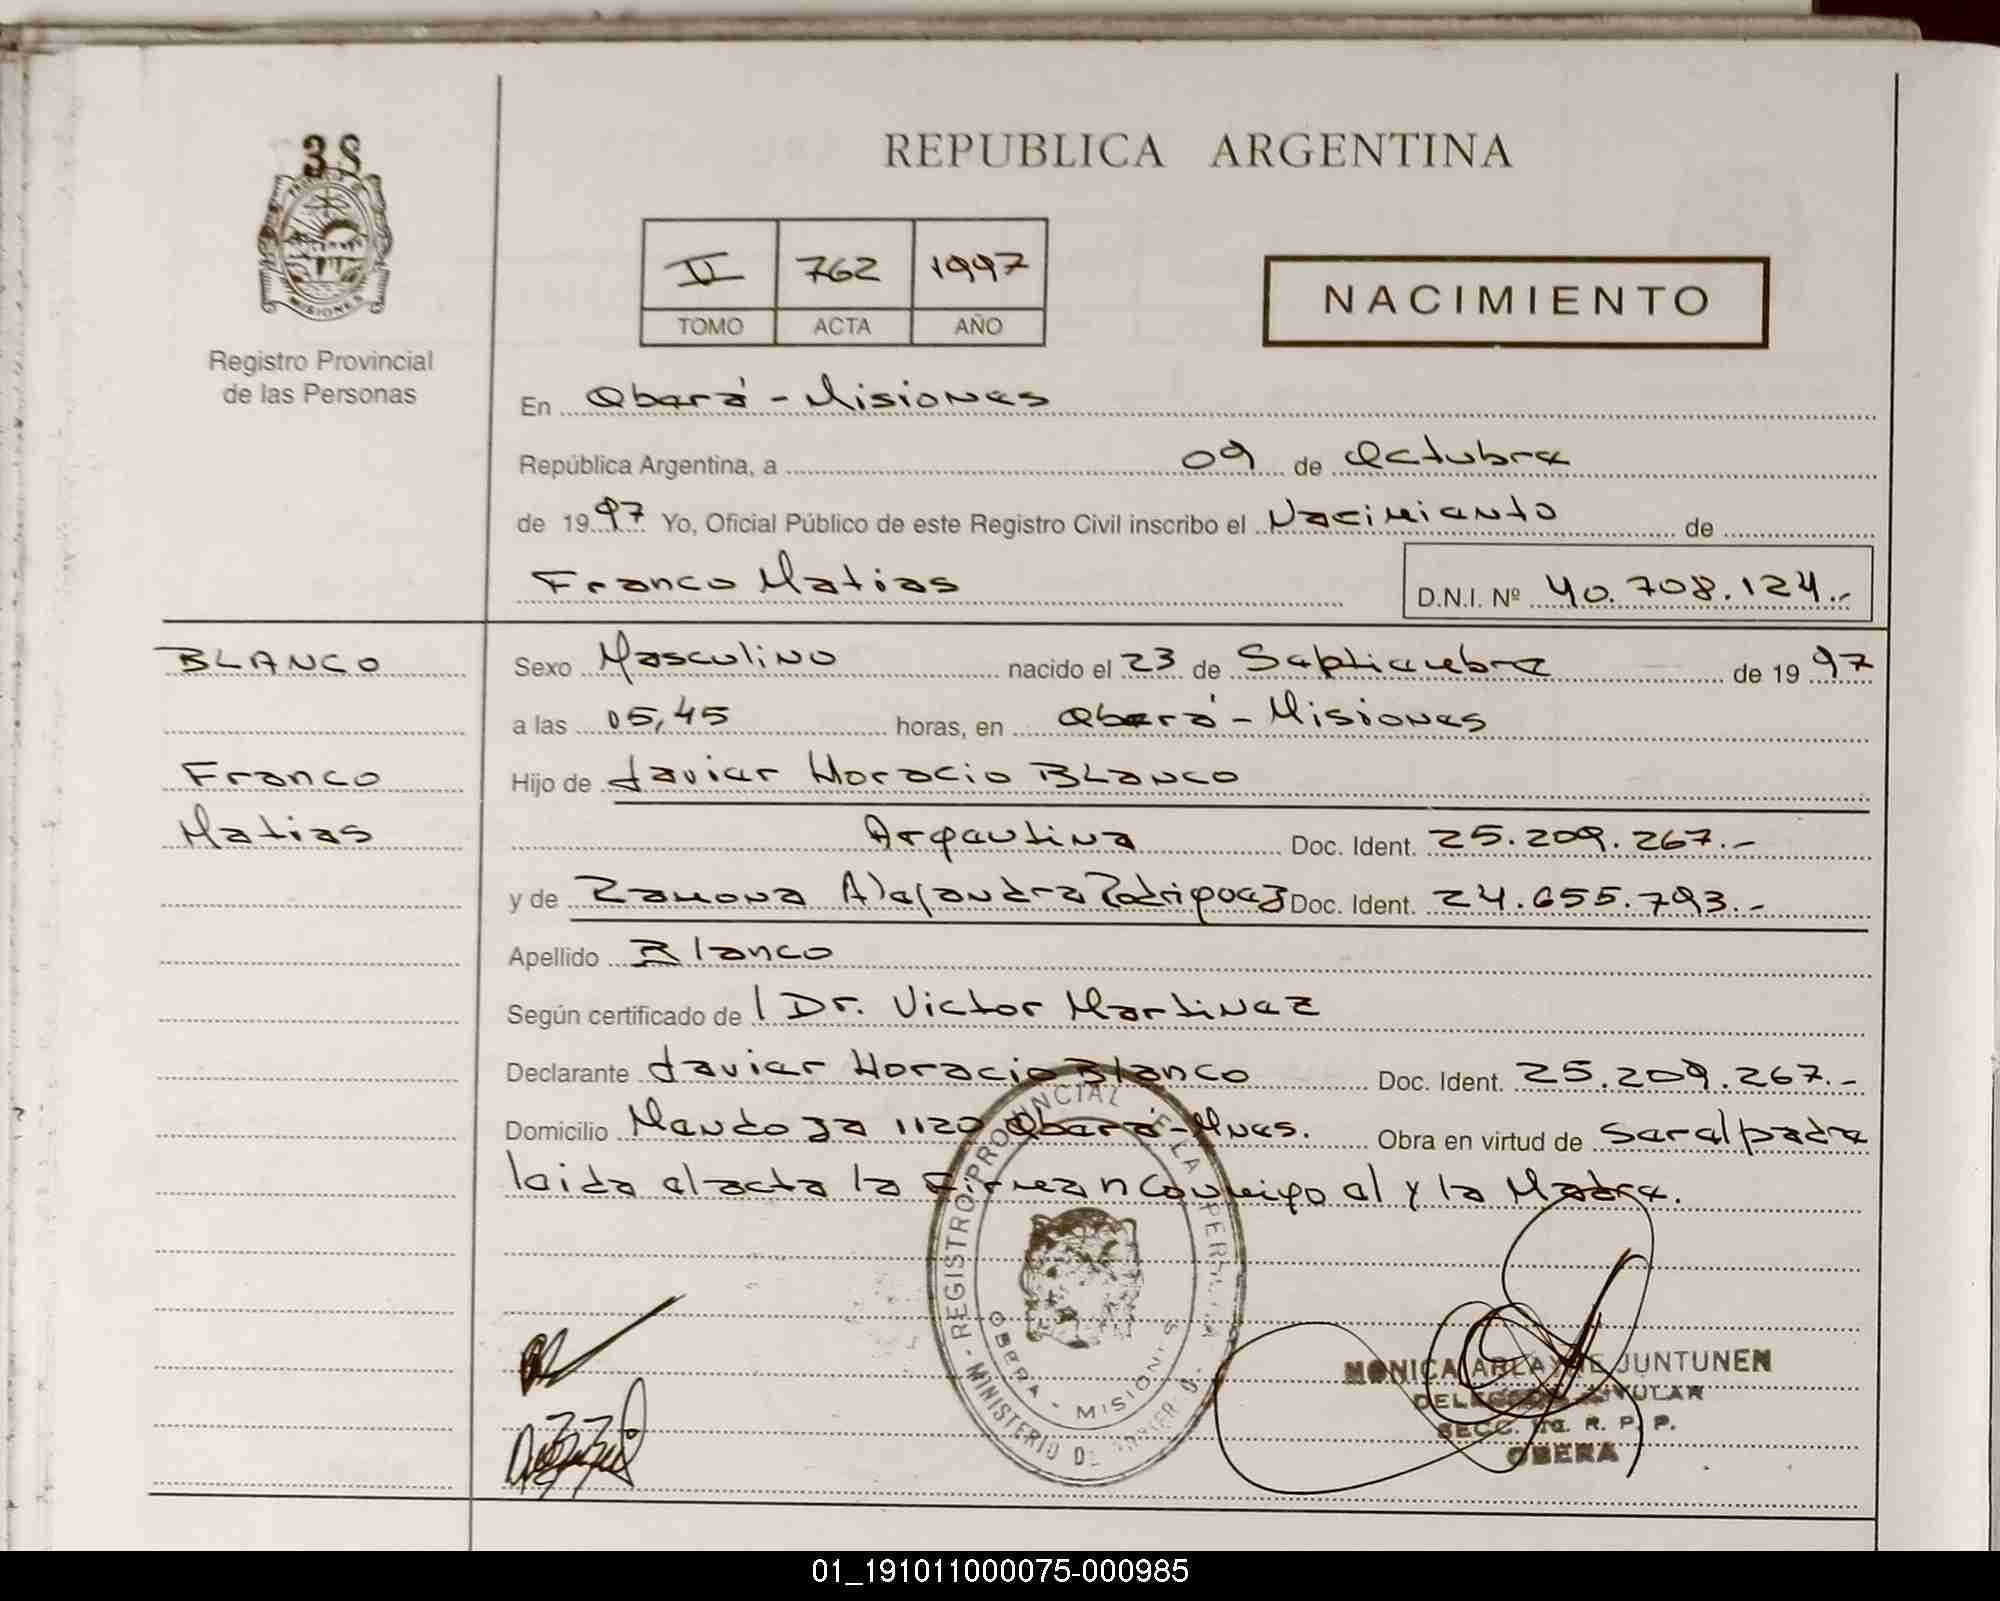 3 S
REPUBLICA ARGENTINA
II 762 1997
TOMO ACTA AÑO
NACIMIENTO
MISIONES
Registro Provincial
de las Personas
En Oberá - Misiones
República Argentina, a 09 de Octubre
de 1997 Yo, Oficial Público de este Registro Civil inscribo el Nacimiento de
Franco Matias D.N.I. Nº 40.708.124.-
BLANCO Sexo Masculino nacido el 23 de Septiembre de 1997
a las 05,45 horas, en Oberá - Misiones
Franco Hijo de Javier Horacio BLANCO
Matias Argentina Doc. Ident. 25.209.267.-
y de Ramona Alejandra Rodriguez Doc. Ident. 24.655.793.-
Apellido Blanco
Según certificado de Dr. Victor Martinez
Declarante Javier Horacio Blanco Doc. Ident. 25.209.267.-
Domicilio Mendoza 1120 Oberá - Mnes. Obra en virtud de ser el padre
leida el acta la Firman conmigo el y la Madre.
REGISTRO PROVINCIAL DE LAS PERSONAS - MINISTERIO DE GOBIERNO -
OBERA - MISIONES
MONICA ARLAYNE JUNTUNEN
DELEGADA TITULAR
SECC. R. P. P.
OBERA
01_191011000075-000985